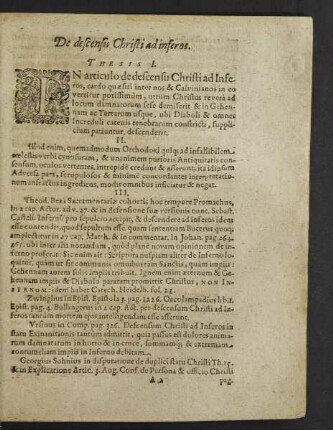 De descensu Christi ad inferos.
THESIS I.
IN articulo de descensu Christi ad Infe-
ros, cardo quæstionis inter nos & Calvinianos in eo
vertitur potissimùm, utrum Christus reverà ad
locum damnatorum sese demiserit & in Gehen-
nam ac Tartarum usque, ubi Diaboli & omnes
increduli catenis tenebrarum constricti, suppli-
cium patiuntur, descenderit.
II.
Illud enim, quemadmodum Orthodoxi ad infallibilem
cælestis verbi cynosuram, & unanimem purioris Antiquitatis con-
sensum, oculos vertentes, intrepidè credunt & asserunt: ita idipsum
Adversa pars, scrupulosos & minimè concordantes interpretatio-
num anfractus ingrediens, modis omnibus inficiatur & negat.
III.
Theod. Beza Sacramentariæ cohortis hoc tempore Promachus,
in 2 cap. Actor. adv. 27. & in defensione suæ versionis cont. Sebast.
Castell. Infernum pro sepulcro accipit, & descendere ad inferos idem
esse contendit, quod sepultum esse. quam sententiam Bucerus quoq;
amplectitur in 27 cap. Matth. & in commentar. in Johan. pag. 264.
265. ubi inter alia notandum, quod planè novam opinionem de in-
ferno profert: Sic enim ait: Scriptura nuspiam aliter de Inferno lo-
quitur, quàm ut sit communis omnibus etiam Sanctis, quum impiis:
Gehennam autem solis impiis tribuit. Ignem enim æternum & Ge-
hennam impiis & Diabolo paratam promittit Christus, NON IN-
FERNUM: idem habet Catech. Heidelb. fol. 22.
Zwinglius in Epist. Epistola 3. pag. 222. 6. Oecolampadius lib. 1.
Epist. pag. 4. Bullingerus in 2 cap. Act. per descensum Christi ad In-
feros tantùm mortem ejus intelligendam esse asserunt.
Ursinus in Comp. pag. 325. Descensum Christi ad Inferos in
statu Exinanitionis tantùm admittit, quia passus est dolores animæ
tarum damnatarum in horto & in cruce, summamq; & extremam
contumeliam impiis in Inferno debitam.
Georgius Sohnius in disputatione de duplici statu Christi Th. 15.
& in Explicatione Artic. 3. Aug. Conf. de Persona & officio Christi
A 2
pag.